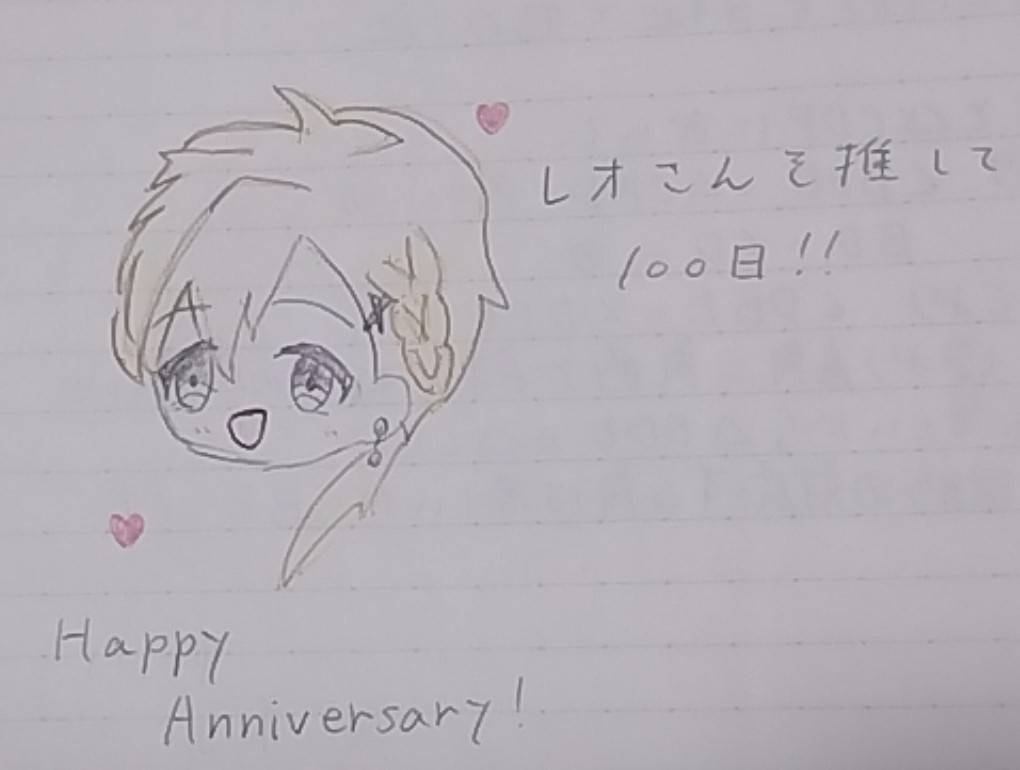 レオさんを推して
100日!!
Happy
Anniversary!